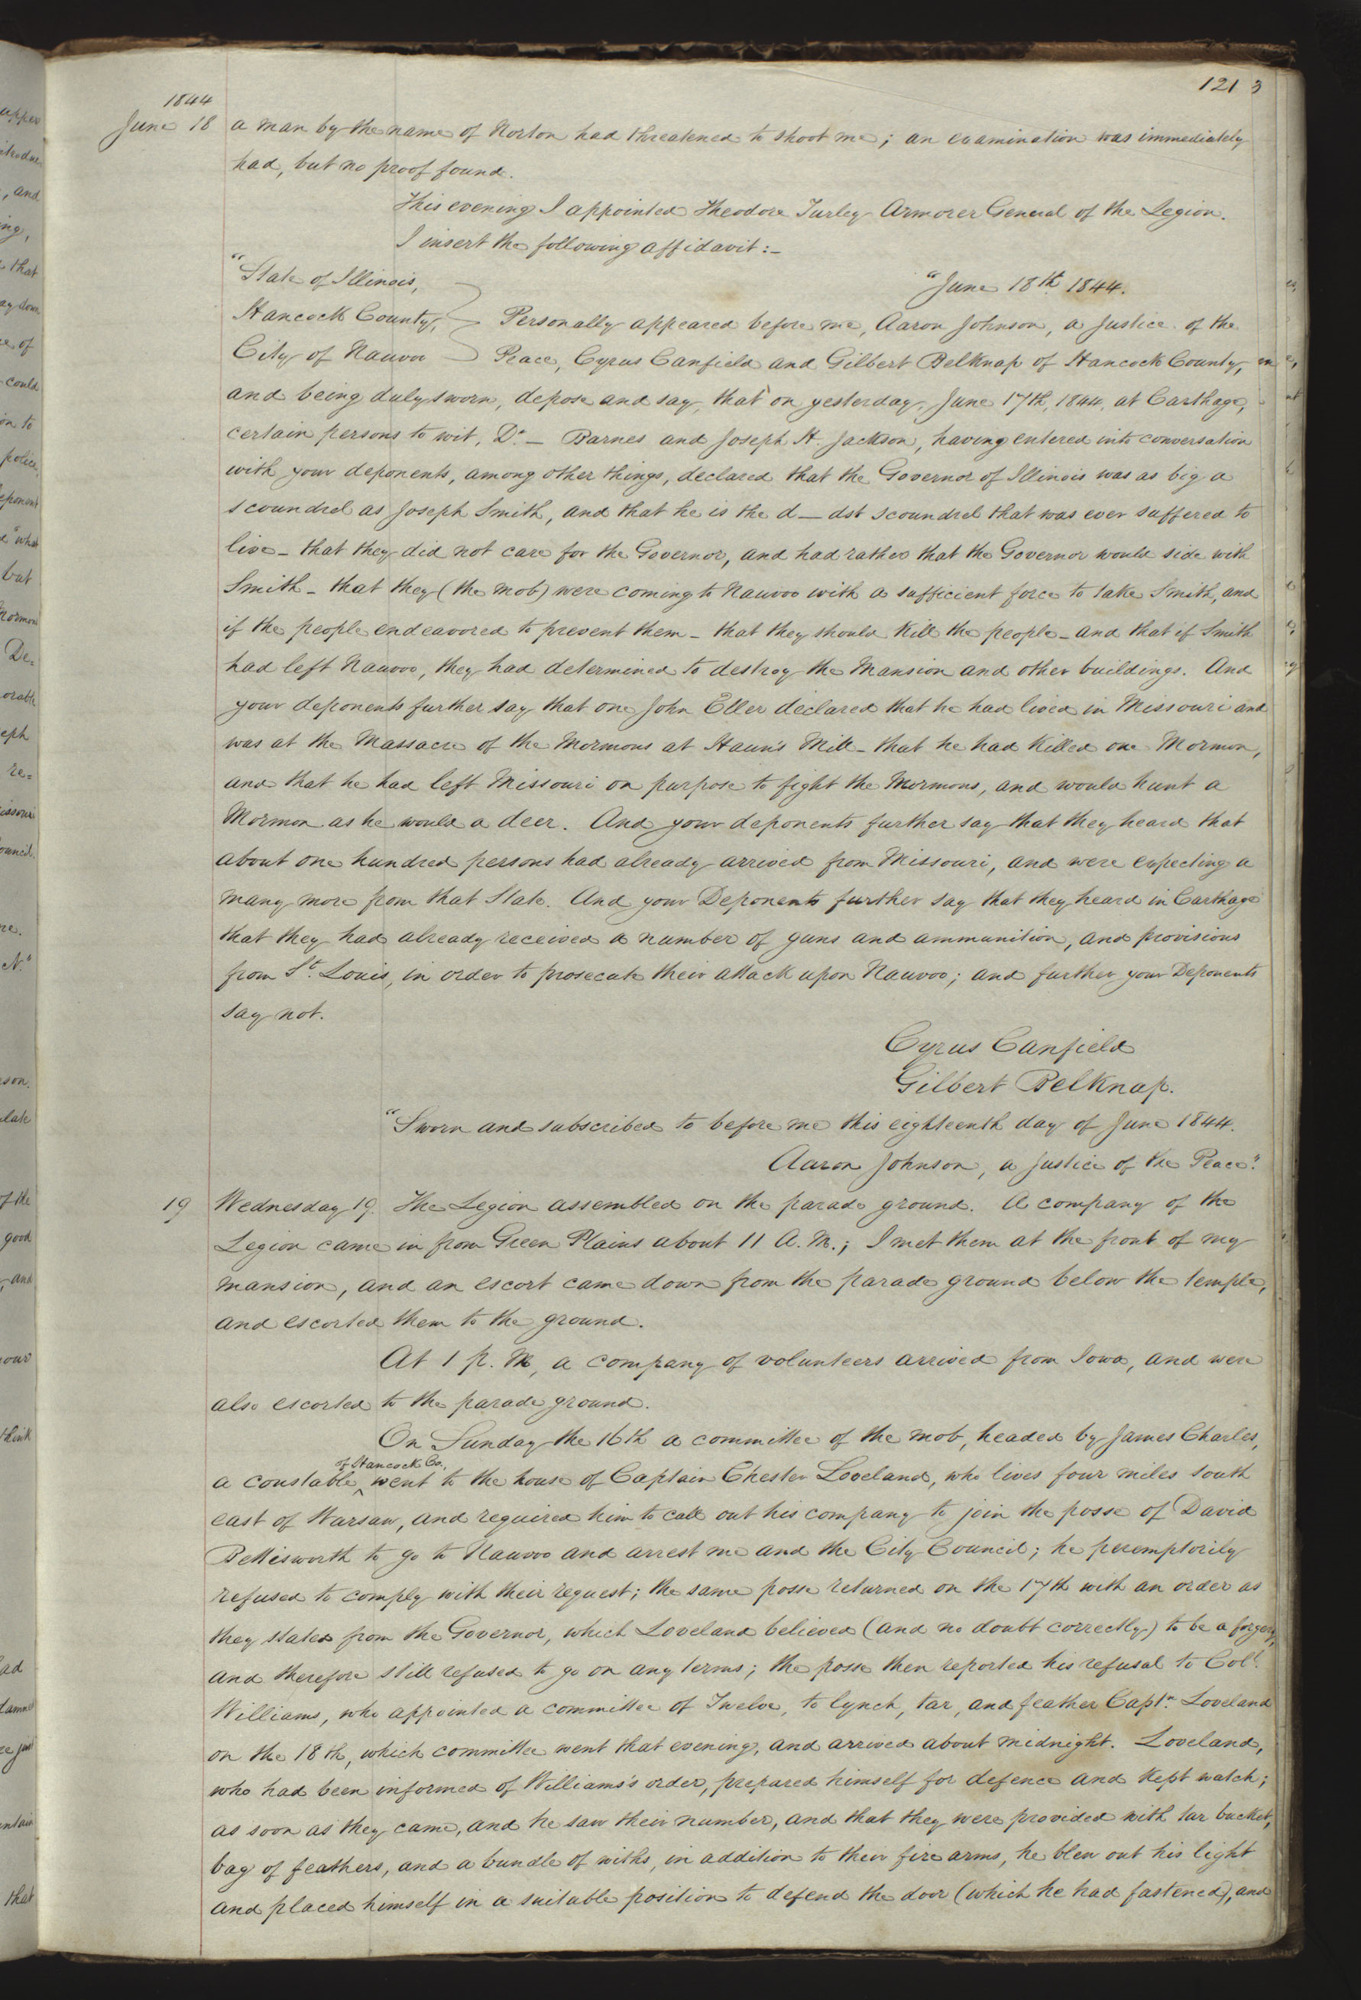 121 3
1844
June 18 a man by the name of Norton had threatened to shoot me; an examination was immediately
had, but no proof found.
This evening I appointed Theodore Turley Armorer General of the Legion.
I insert the following affidavit:–
"State of Illinois, "June 18th 1844.
Hancock County, Personally appeared before me, Aaron Johnson, a Justice of the
City of Nauvoo Peace, Cyrus Canfield and Gilbert Belknap of Hancock County,
and being duly sworn, depose and say, that on yesterday, June 17th, 1844, at Carthage,
certain persons to wit, Dr. – Barnes and Joseph H. Jackson, having entered into conversation
with your deponents, among other things, declared that the Governor of Illinois was as big a
scoundrel as Joseph Smith, and that he is the d–dst scoundrel that was ever suffered to
live – that they did not care for the Governor, and had rather that the Governor would side with
Smith – that they (the mob) were coming to Nauvoo with a sufficient force to take Smith, and
if the people endeavored to prevent them – that they should kill the people – and that if Smith
had left Nauvoo, they had determined to destroy the Mansion and other buildings. And
your deponents further say that one John Eller declared that he had lived in Missouri and
was at the Massacre of the Mormons at Haun's Mill – that he had killed one Mormon,
and that he had left Missouri on purpose to fight the Mormons, and would hunt a
Mormon as he would a deer. And your deponents further say that they heard that
about one hundred persons had already arrived from Missouri, and were expecting a
many more from that State. And your Deponents further say that they heard in Carthage
that they had already received a number of guns and ammunition, and provisions
from St. Louis, in order to prosecute their attack upon Nauvoo; and further your Deponents
say not.
Cyrus Canfield
Gilbert Belknap.
"Sworn and subscribed to before me this eighteenth day of June 1844.
Aaron Johnson, a Justice of the Peace."
19 Wednesday 19. The Legion assembled on the parade ground. A company of the
Legion came in from Green Plains about 11 A.M.; I met them at the front of my
mansion, and an escort came down from the parade ground below the temple,
and escorted them to the ground.
At 1 p.M, a company of volunteers arrived from Iowa, and were
also escorted to the parade ground.
On Sunday the 16th a committee of the mob, headed by James Charles,
of Hancock Co.,
a constable ^ went to the house of Captain Chester Loveland, who lives four miles south
east of Warsaw, and required him to call out his company to join the posse of David
Bettisworth to go to Nauvoo and arrest me and the City Council; he peremptorily
refused to comply with their request; the same posse returned on the 17th with an order as
they stated from the Governor, which Loveland believed (and no doubt correctly) to be a forgery,
and therefore still refused to go on any terms; the posse then reported his refusal to Col.
Williams, who appointed a committee of Twelve, to lynch, tar, and feather Captn. Loveland
on the 18th, which committee went that evening, and arrived about midnight. Loveland,
who had been informed of Williams's order, prepared himself for defence and kept watch;
as soon as they came, and he saw their number, and that they were provided with tar bucket,
bag of feathers, and a bundle of withs, in addition to their fire arms, he blew out his light
and placed himself in a suitable position to defend the door (which he had fastened), and